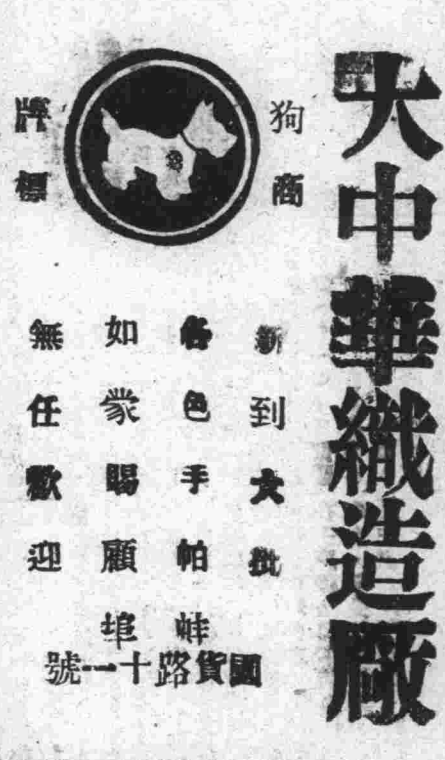 大中華織造廠
狗牌
商標
新到大批
各色手帕蛙
如蒙賜顧埠
無任歡迎
國貨路十一號